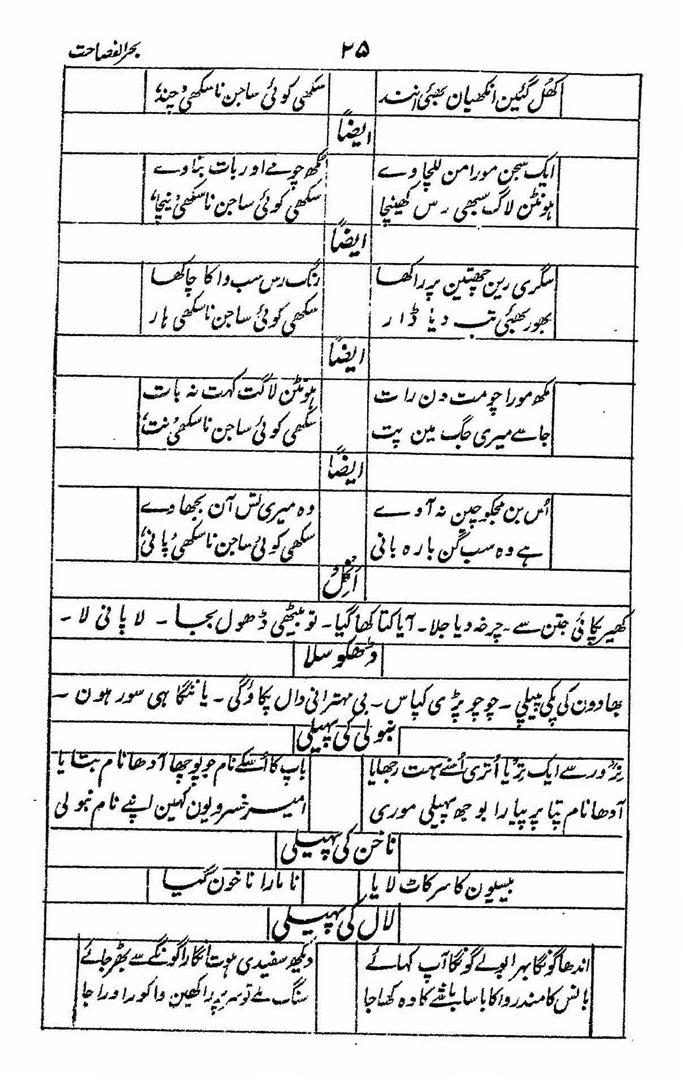 بحر الفصاحت ۲۵
کھل گئین انکھیان بھئی انند سکھی کوئی ساجن نا سکھی چند
ایضاً
ایک سجن مورا من للچاوے مکھ چومے اور بات بناوے
ہونٹن لاگ سبھی رس کھینچا سکھی کوئی ساجن نا سکھی نیچا
ایضاً
سگری رین چھتین پر راکھا رنگ رس سب وا کا چاکھا
بھور بھئی تب دیا ڈار سکھی کوئی ساجن نا سکھی ہار
ایضاً
مکھ مورا چومت دن رات ہونٹن لاگت کہت نہ بات
جا سے میری جگ مین پت سکھی کوئی ساجن نا سکھی نت
ایضاً
اُس بن مجکو چین نہ آوے وہ میری تس آن بجھاوے
ہے وہ سب گن بارہ بانی سکھی کوئی ساجن نا سکھی پانی
انمل
کھیر پکائی جتن سے۔ چرخہ دیا جلا۔ آیا کتا کھا گیا۔ تو بیٹھی ڈھول بجا۔ لا پانی لا۔
ڈھکوسلا
بھادون کی پکی پیپلی۔ چوچو پڑی کپاس۔ بی مہترانی دال پکاؤگی۔ یا ننگا ہی سور ہون۔
نبولی کی پہیلی
ترور سے ایک تریا اُتری اُسنے بہت رجھایا باپ کا اُسکے نام جو پوچھا آدھا نام بتایا
آدھا نام پتا پر پیارا بوجھ پہیلی موری امیر خسرو یون کہین اپنے نام نبولی
ناخن کی پہیلی
بیسیون کا سر کاٹ لایا نا مارا نا خون کیا
لال کی پہیلی
اندھا گونگا بہرا بولے گونگا آپ کہائے دیکھ سفیدی ہوت انگارا گونگے سے بھڑ جائے
بانس کا مندر وا کا باسا باشے کا وہ کھاجا سنگ ملے تو سر پر راکھین وا کو راو راجا